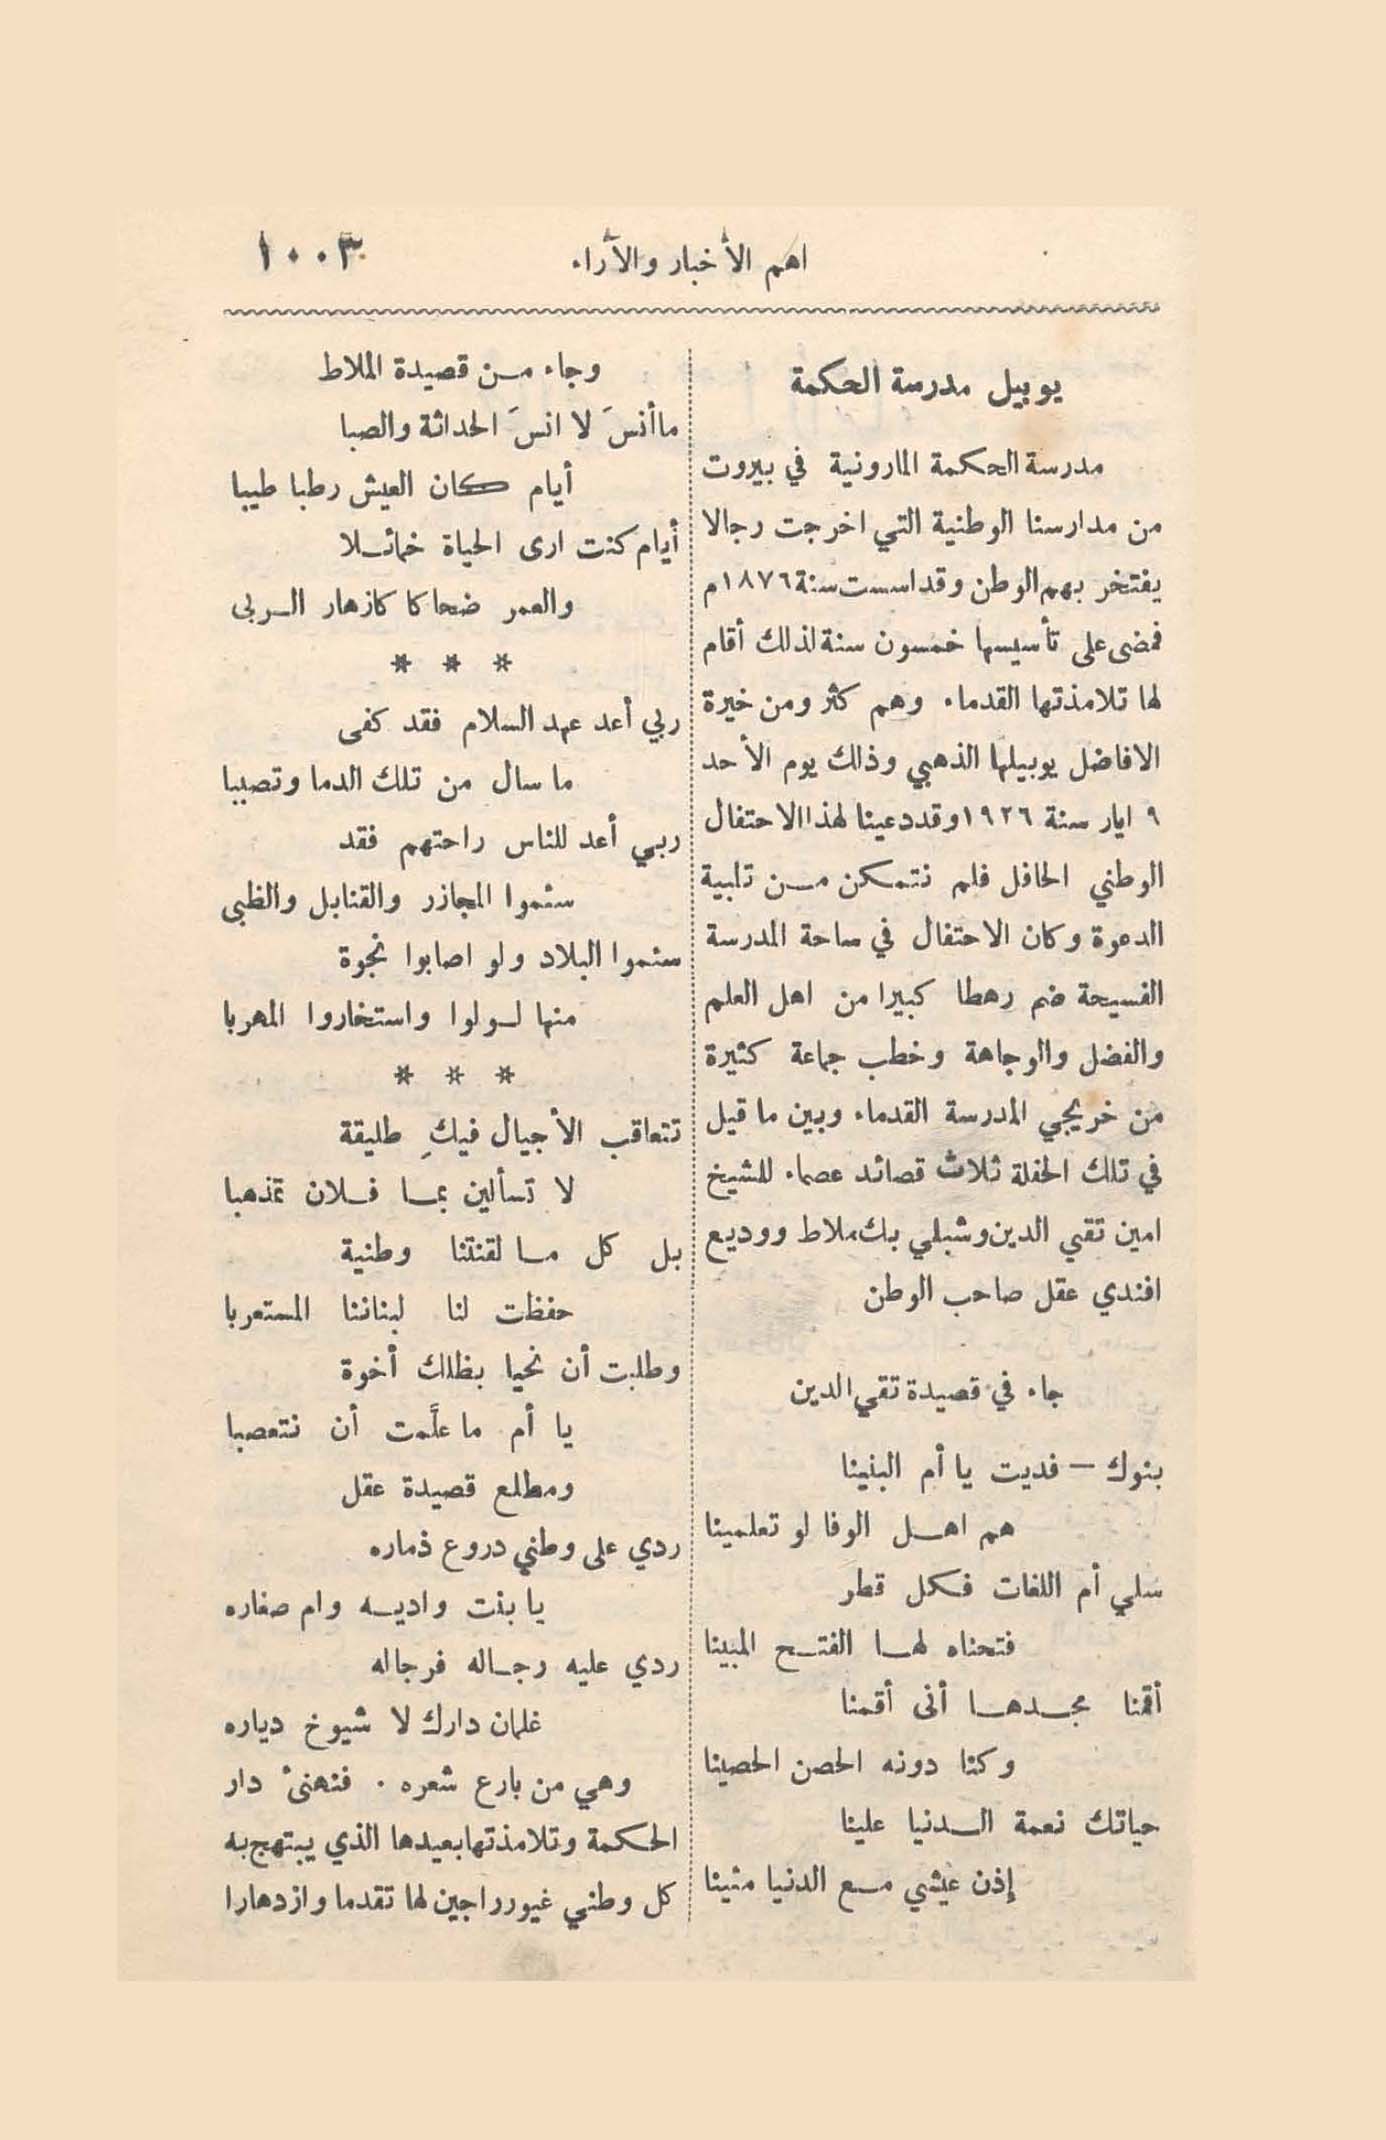 اهم الأخبار والآراء
١٠٠٣
يوبيل مدرسة الحكمة
مدرسة الحكمة المارونية في بيروت
من مدارسنا الوطنية التي اخرجت رجالا
يفتخر بهم الوطن وقد اسست سنة ١٨٧٦م
فمضى على تأسيسها خمسون سنة لذلك أقام
لها تلامذتها القدماء وهم كثر ومن خيرة
الافاضل يوبيلها الذهبي وذلك يوم الأحد
٩ ايار سنة ١٩٢٦ وقد دعينا لهذا الاحتفال
الوطني الحافل فلم نتمكن من تلبية
الدعوة وكان الاحتفال في ساحة المدرسة
الفسيحة ضم رهطا كبيرا من اهل العلم
والفضل والوجاهة وخطب جماعة كثيرة
من خريجي المدرسة القدماء وبين ما قيل
في تلك الحفلة ثلاث قصائد عصماء للشيخ
امين تقي الدين وشبلي بك ملاط ووديع
افندي عقل صاحب الوطن
جاء في قصيدة تقي الدين
بنوك — فديت يا أم البنينا
هم اهل الوفا لو تعلمينا
سلي أم اللغات فكل قطر
فتحناه لها الفتح المبينا
أقمنا مجدها أنى أقمنا
وكنا دونه الحصن الحصينا
حياتك نعمة الدنيا علينا
إذن عيشي مع الدنيا مئينا
وجاء من قصيدة الملاط
ما أنسَ لا انسَ الحداثة والصبا
أيام كان العيش رطبا طيبا
أيام كنت ارى الحياة خمائلا
والعمر ضحاكا كازهار الربى
* * *
ربي أعد عهد السلام فقد كفى
ما سال من تلك الدما وتصببا
ربي أعد للناس راحتهم فقد
سئموا المجازر والقنابل والظبى
سئموا البلاد ولو اصابوا نجوة
منها لولوا واستخاروا المهربا
* * *
تتعاقب الأجيال فيكِ طليقة
لا تسألين بما فلان تمذهبا
بل كل ما لقنتنا وطنية
حفظت لنا لبناننا المستعربا
وطلبت أن نحيا بظلك أخوة
يا أم ما علَّمت أن نتعصبا
ومطلع قصيدة عقل
ردي على وطني دروع ذماره
يا بنت واديه وام صغاره
ردي عليه رجاله فرجاله
غلمان دارك لا شيوخ دياره
وهي من بارع شعره . فنهنئ دار
الحكمة وتلامذتها بعيدها الذي يبتهج به
كل وطني غيور راجين لها تقدما وازدهارا